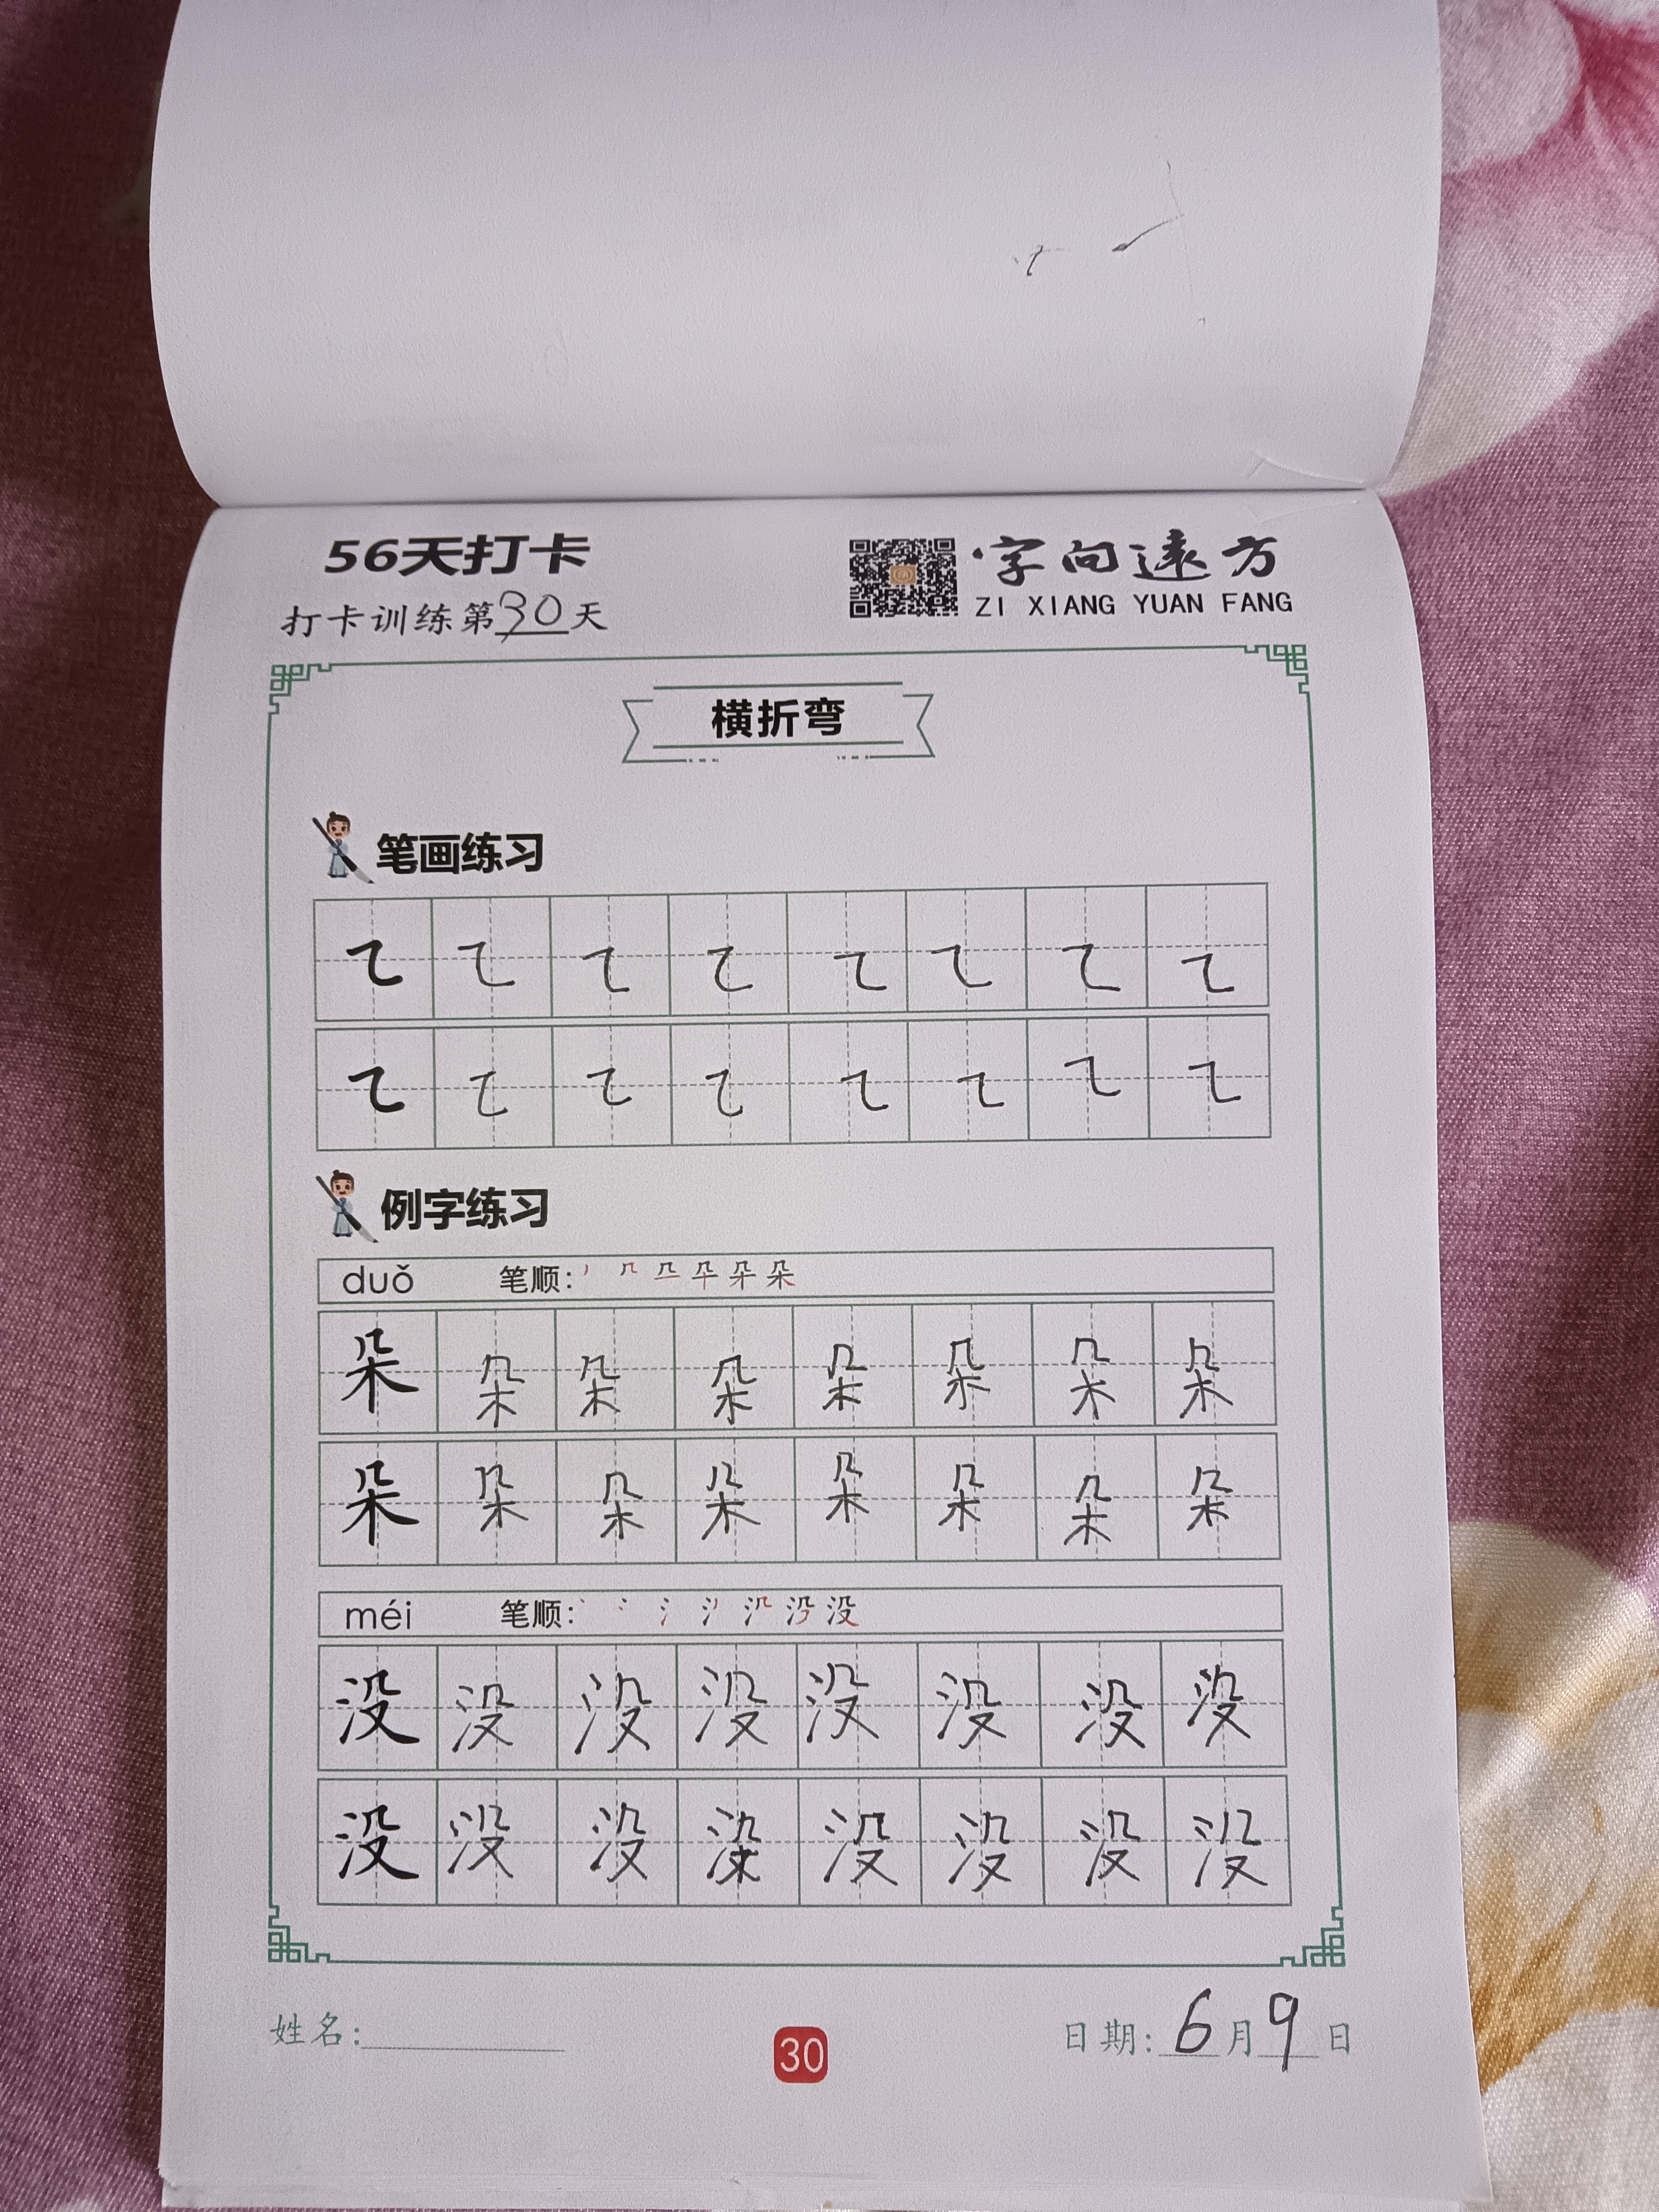 56天打卡
字向遠方
打卡训练第30天
ZI XIANG YUAN FANG
横折弯
笔画练习
㇍ ㇍ ㇍ ㇍ ㇍ ㇍ ㇍ ㇍
㇍ ㇍ ㇍ ㇍ ㇍ ㇍ ㇍ ㇍
例字练习
duǒ 笔顺:
朵 朵 朵 朵 朵 朵 朵 朵
朵 朵 朵 朵 朵 朵 朵 朵
méi 笔顺:
没 没 没 没 没 没 没 没
没 没 没 没 没 没 没
姓名:
30
日期: 6月9日